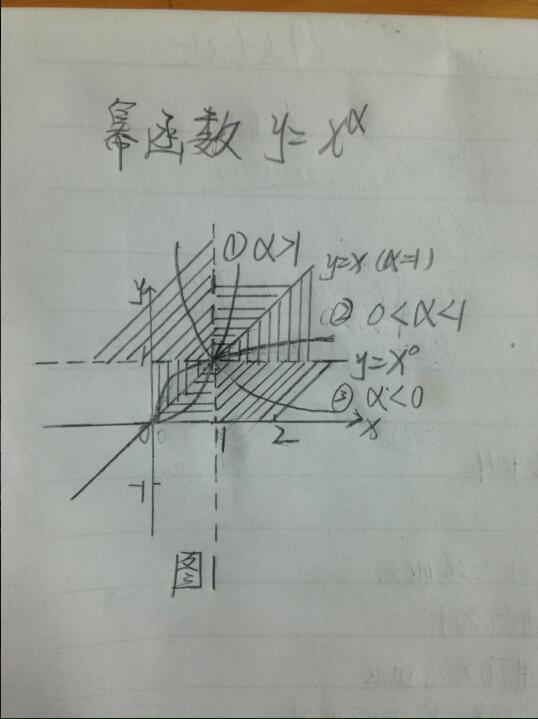 幂函数 y=x^α
① α>1
y=x (α=1)
y
② 0<α<1
y=x⁰
③ α<0
0 1 2 x
-1
图1